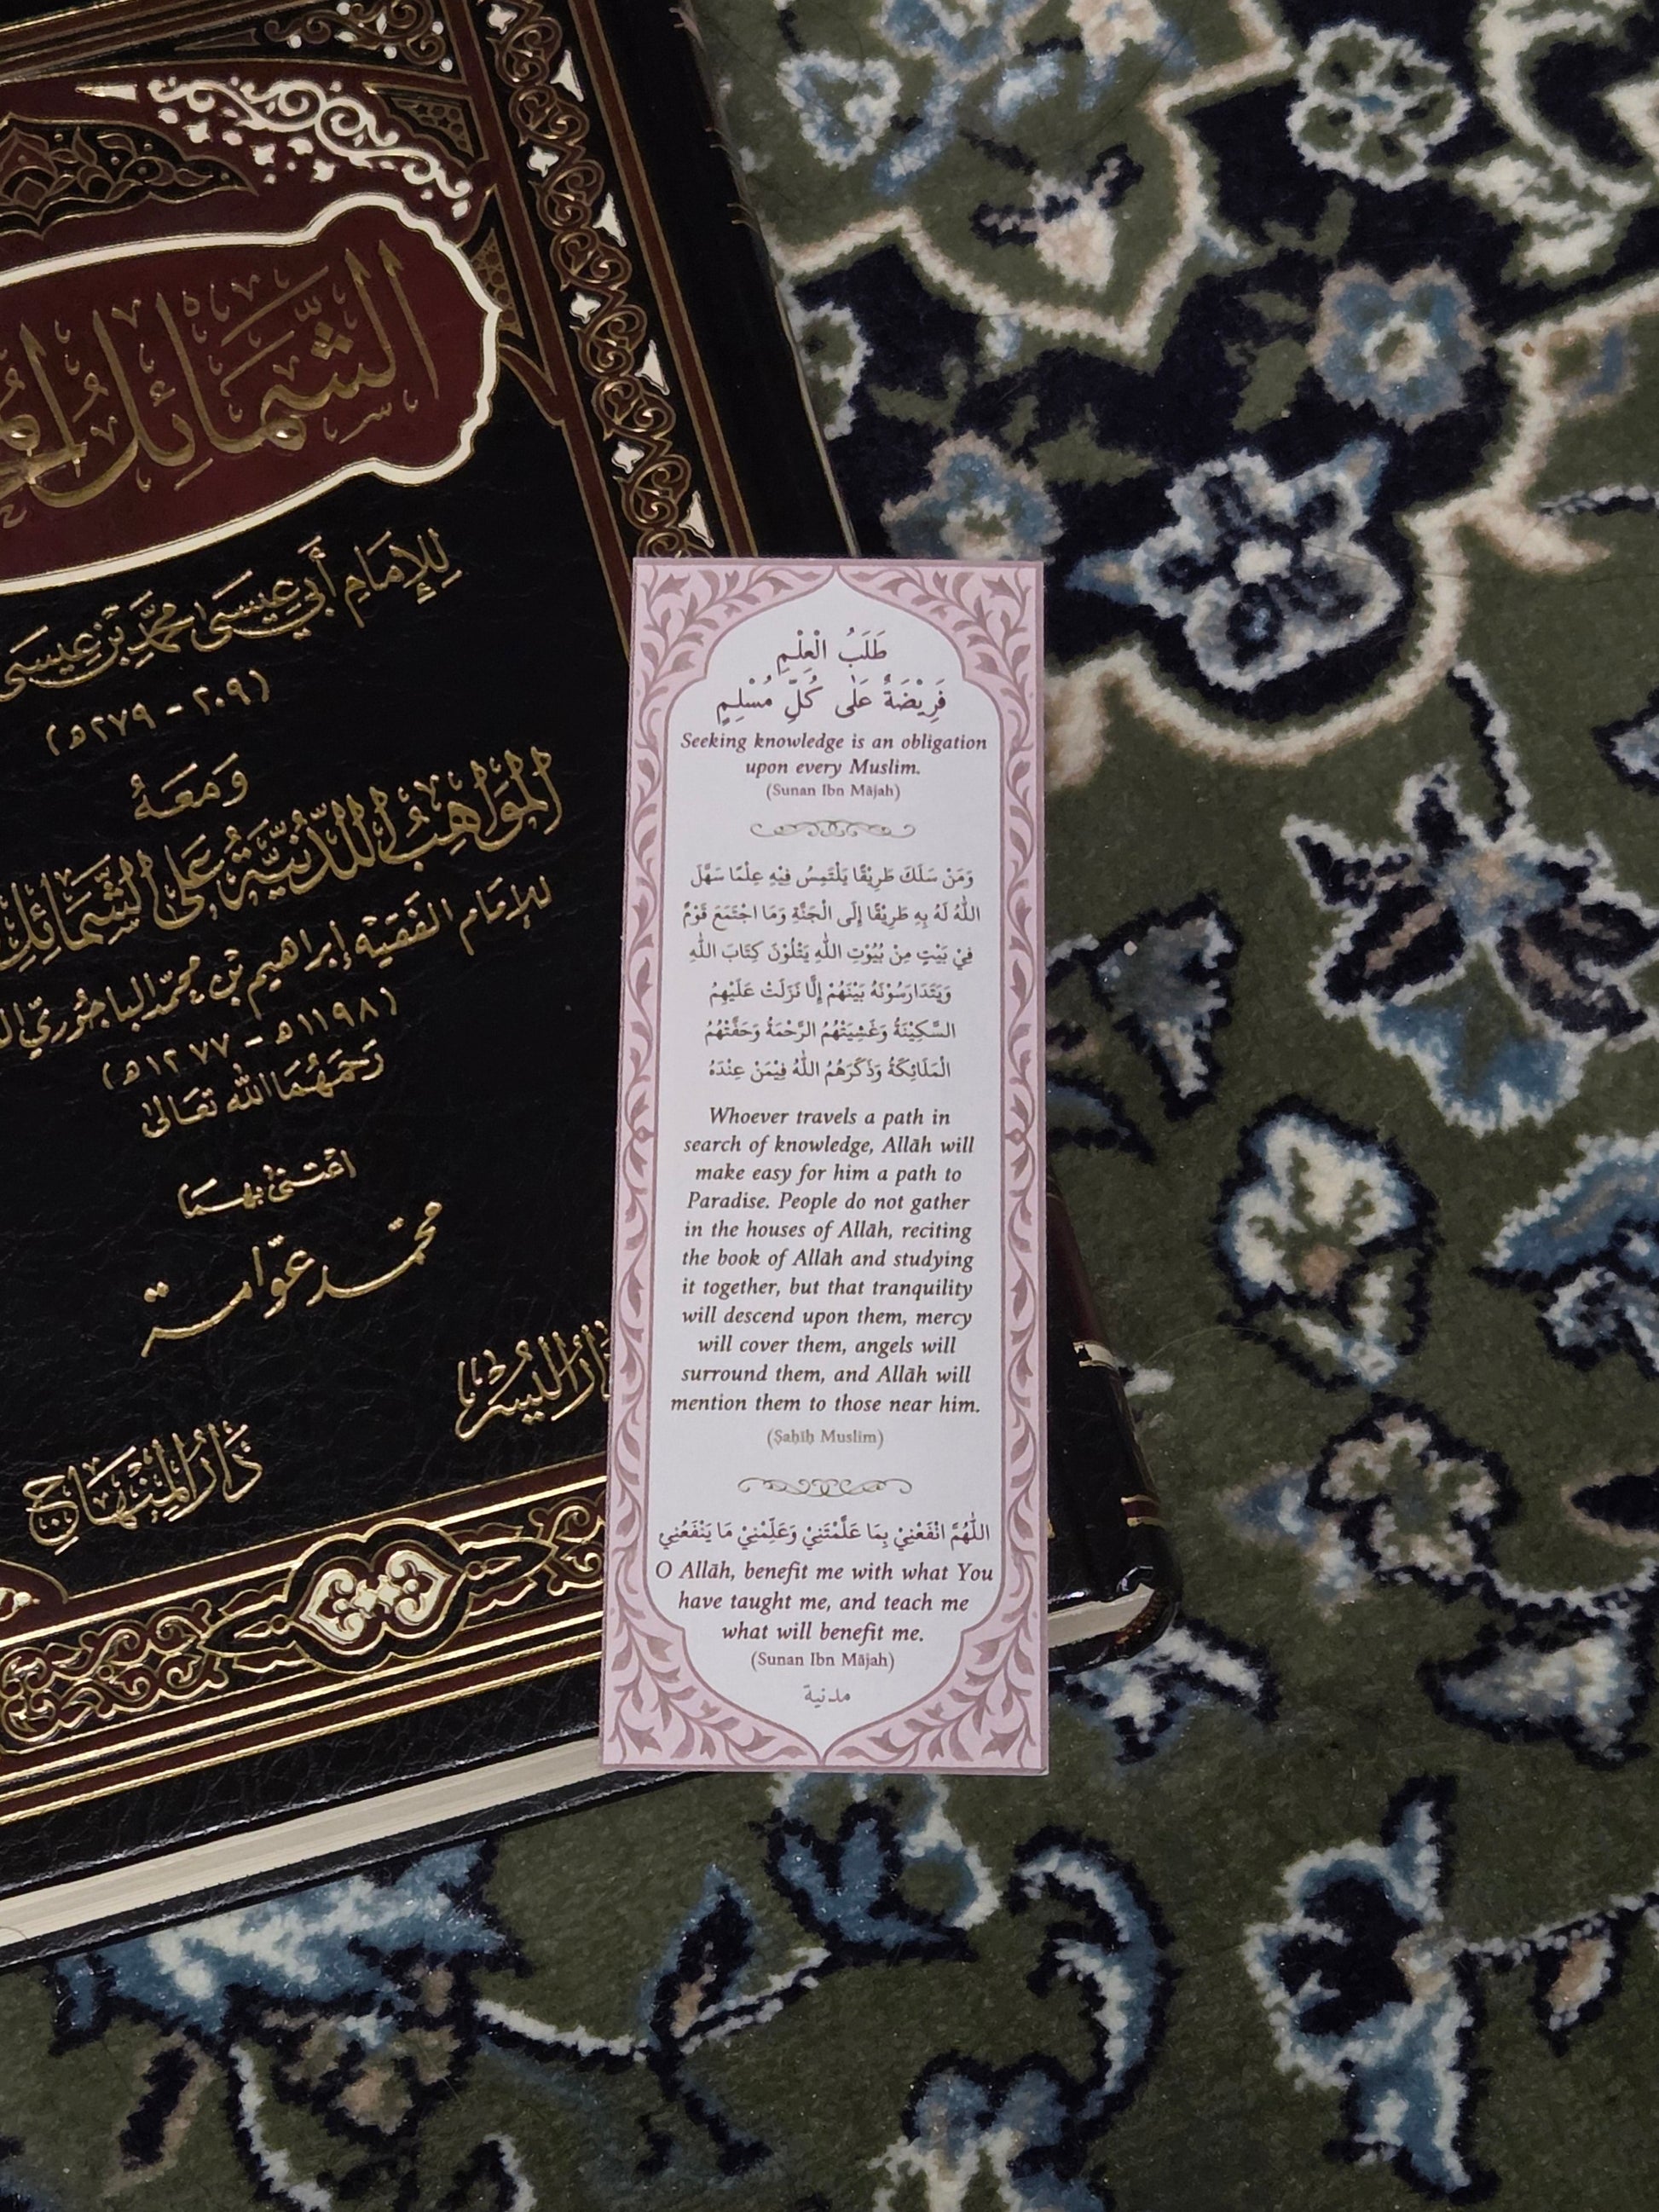 الشَّمَائِلُ
لِلإِمَامِ أَبِي عِيسَى مُحَمَّدِ بْنِ عِيسَى
(٢٠٩ - ٢٧٩ه)
وَمَعَهُ
المَوَاهِبُ اللَّدُنِّيَّةُ عَلَى الشَّمَائِلِ
للإمَام الفَقيْه إبراهيم بْن محمّد الباجُوريّ
(١١٩٨ه - ١٢٧٧ه)
رَحِمَهُمَا اللّه تعَالىٰ
اعْتَنىٰ بهِمَا
محمّد عوّامة
دَارُ اليُسْر
دَارُ المِنْهَاج
طَلَبُ الْعِلْمِ
فَرِيْضَةٌ عَلٰى كُلِّ مُسْلِمٍ
Seeking knowledge is an obligation
upon every Muslim.
(Sunan Ibn Mājah)
وَمَنْ سَلَكَ طَرِيْقًا يَلْتَمِسُ فِيْهِ عِلْمًا سَهَّلَ
اللّٰهُ لَهُ بِهِ طَرِيْقًا إِلَى الْجَنَّةِ وَمَا اجْتَمَعَ قَوْمٌ
فِيْ بَيْتٍ مِنْ بُيُوْتِ اللّٰهِ يَتْلُوْنَ كِتَابَ اللّٰهِ
وَيَتَدَارَسُوْنَهُ بَيْنَهُمْ إِلَّا نَزَلَتْ عَلَيْهِمُ
السَّكِيْنَةُ وَغَشِيَتْهُمُ الرَّحْمَةُ وَحَفَّتْهُمُ
الْمَلَائِكَةُ وَذَكَرَهُمُ اللّٰهُ فِيْمَنْ عِنْدَهُ
Whoever travels a path in
search of knowledge, Allāh will
make easy for him a path to
Paradise. People do not gather
in the houses of Allāh, reciting
the book of Allāh and studying
it together, but that tranquility
will descend upon them, mercy
will cover them, angels will
surround them, and Allāh will
mention them to those near him.
(Ṣaḥīḥ Muslim)
اللّٰهُمَّ انْفَعْنِيْ بِمَا عَلَّمْتَنِيْ وَعَلِّمْنِيْ مَا يَنْفَعُنِي
O Allāh, benefit me with what You
have taught me, and teach me
what will benefit me.
(Sunan Ibn Mājah)
مدنية